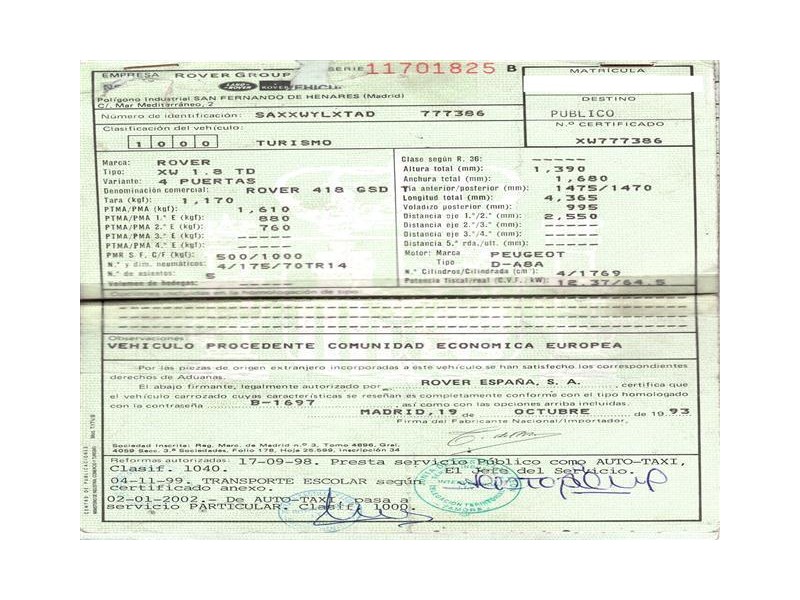 EMPRESA ROVER GROUP
SERIE 11701825 B
MATRICULA
LAND ROVER ROVER
Polígono Industrial SAN FERNANDO DE HENARES (Madrid)
C/. Mar Mediterráneo, 2
DESTINO
PUBLICO
Número de identificación: SAXXWYLXTAD 777386
N.º CERTIFICADO
XW777386
Clasificación del vehículo:
1 0 0 0 TURISMO
Marca: ROVER
Tipo: XW 1.8 TD
Variante: 4 PUERTAS
Denominación comercial: ROVER 418 GSD
Tara (kgf): 1,170
PTMA/PMA (kgf): 1,610
PTMA/PMA 1.º E (kgf): 880
PTMA/PMA 2.º E (kgf): 760
PTMA/PMA 3.º E (kgf): -----
PTMA/PMA 4.º E (kgf): -----
PMR S F, C/F (kgf): 500/1000
N.º y dim. neumáticos: 4/175/70TR14
N.º de asientos: 5
Volumen de bodegas: -----
Clase según R. 36: -----
Altura total (mm): 1,390
Anchura total (mm): 1,680
Vía anterior/posterior (mm): 1475/1470
Longitud total (mm): 4,365
Voladizo posterior (mm): 995
Distancia eje 1.º/2.º (mm): 2,550
Distancia eje 2.º/3.º (mm): -----
Distancia eje 3.º/4.º (mm): -----
Distancia 5.ª rda./ult. (mm): -----
Motor: Marca PEUGEOT
Tipo D-A8A
N.º Cilindros/Cilindrada (cm³): 4/1769
Potencia fiscal/real (C.V.F./kW): 12.37/64.5
Observaciones:
VEHICULO PROCEDENTE COMUNIDAD ECONOMICA EUROPEA
Por las piezas de origen extranjero incorporadas a este vehículo se han satisfecho los correspondientes
derechos de Aduanas.
El abajo firmante, legalmente autorizado por ROVER ESPAÑA, S. A. , certifica que
el vehículo carrozado cuyas características se reseñan es completamente conforme con el tipo homologado
con la contraseña B-1697 así como con las opciones arriba incluidas.
MADRID, 19 de OCTUBRE de 19 93
Firma del Fabricante Nacional/Importador,
Sociedad Inscrita: Reg. Merc. de Madrid n.º 3, Tomo 4896, Gral.
4059 Secc. 3.ª Sociedades, Folio 178, Hoja 25.599, Inscripción
Reformas autorizadas: 17-09-98. Presta servicio Público como AUTO-TAXI,
Clasif. 1040. El Jefe del Servicio.
04-11-99. TRANSPORTE ESCOLAR según
certificado anexo.
02-01-2002.- De AUTO-TAXI, pasa a
servicio PARTICULAR. Clasif. 1000.